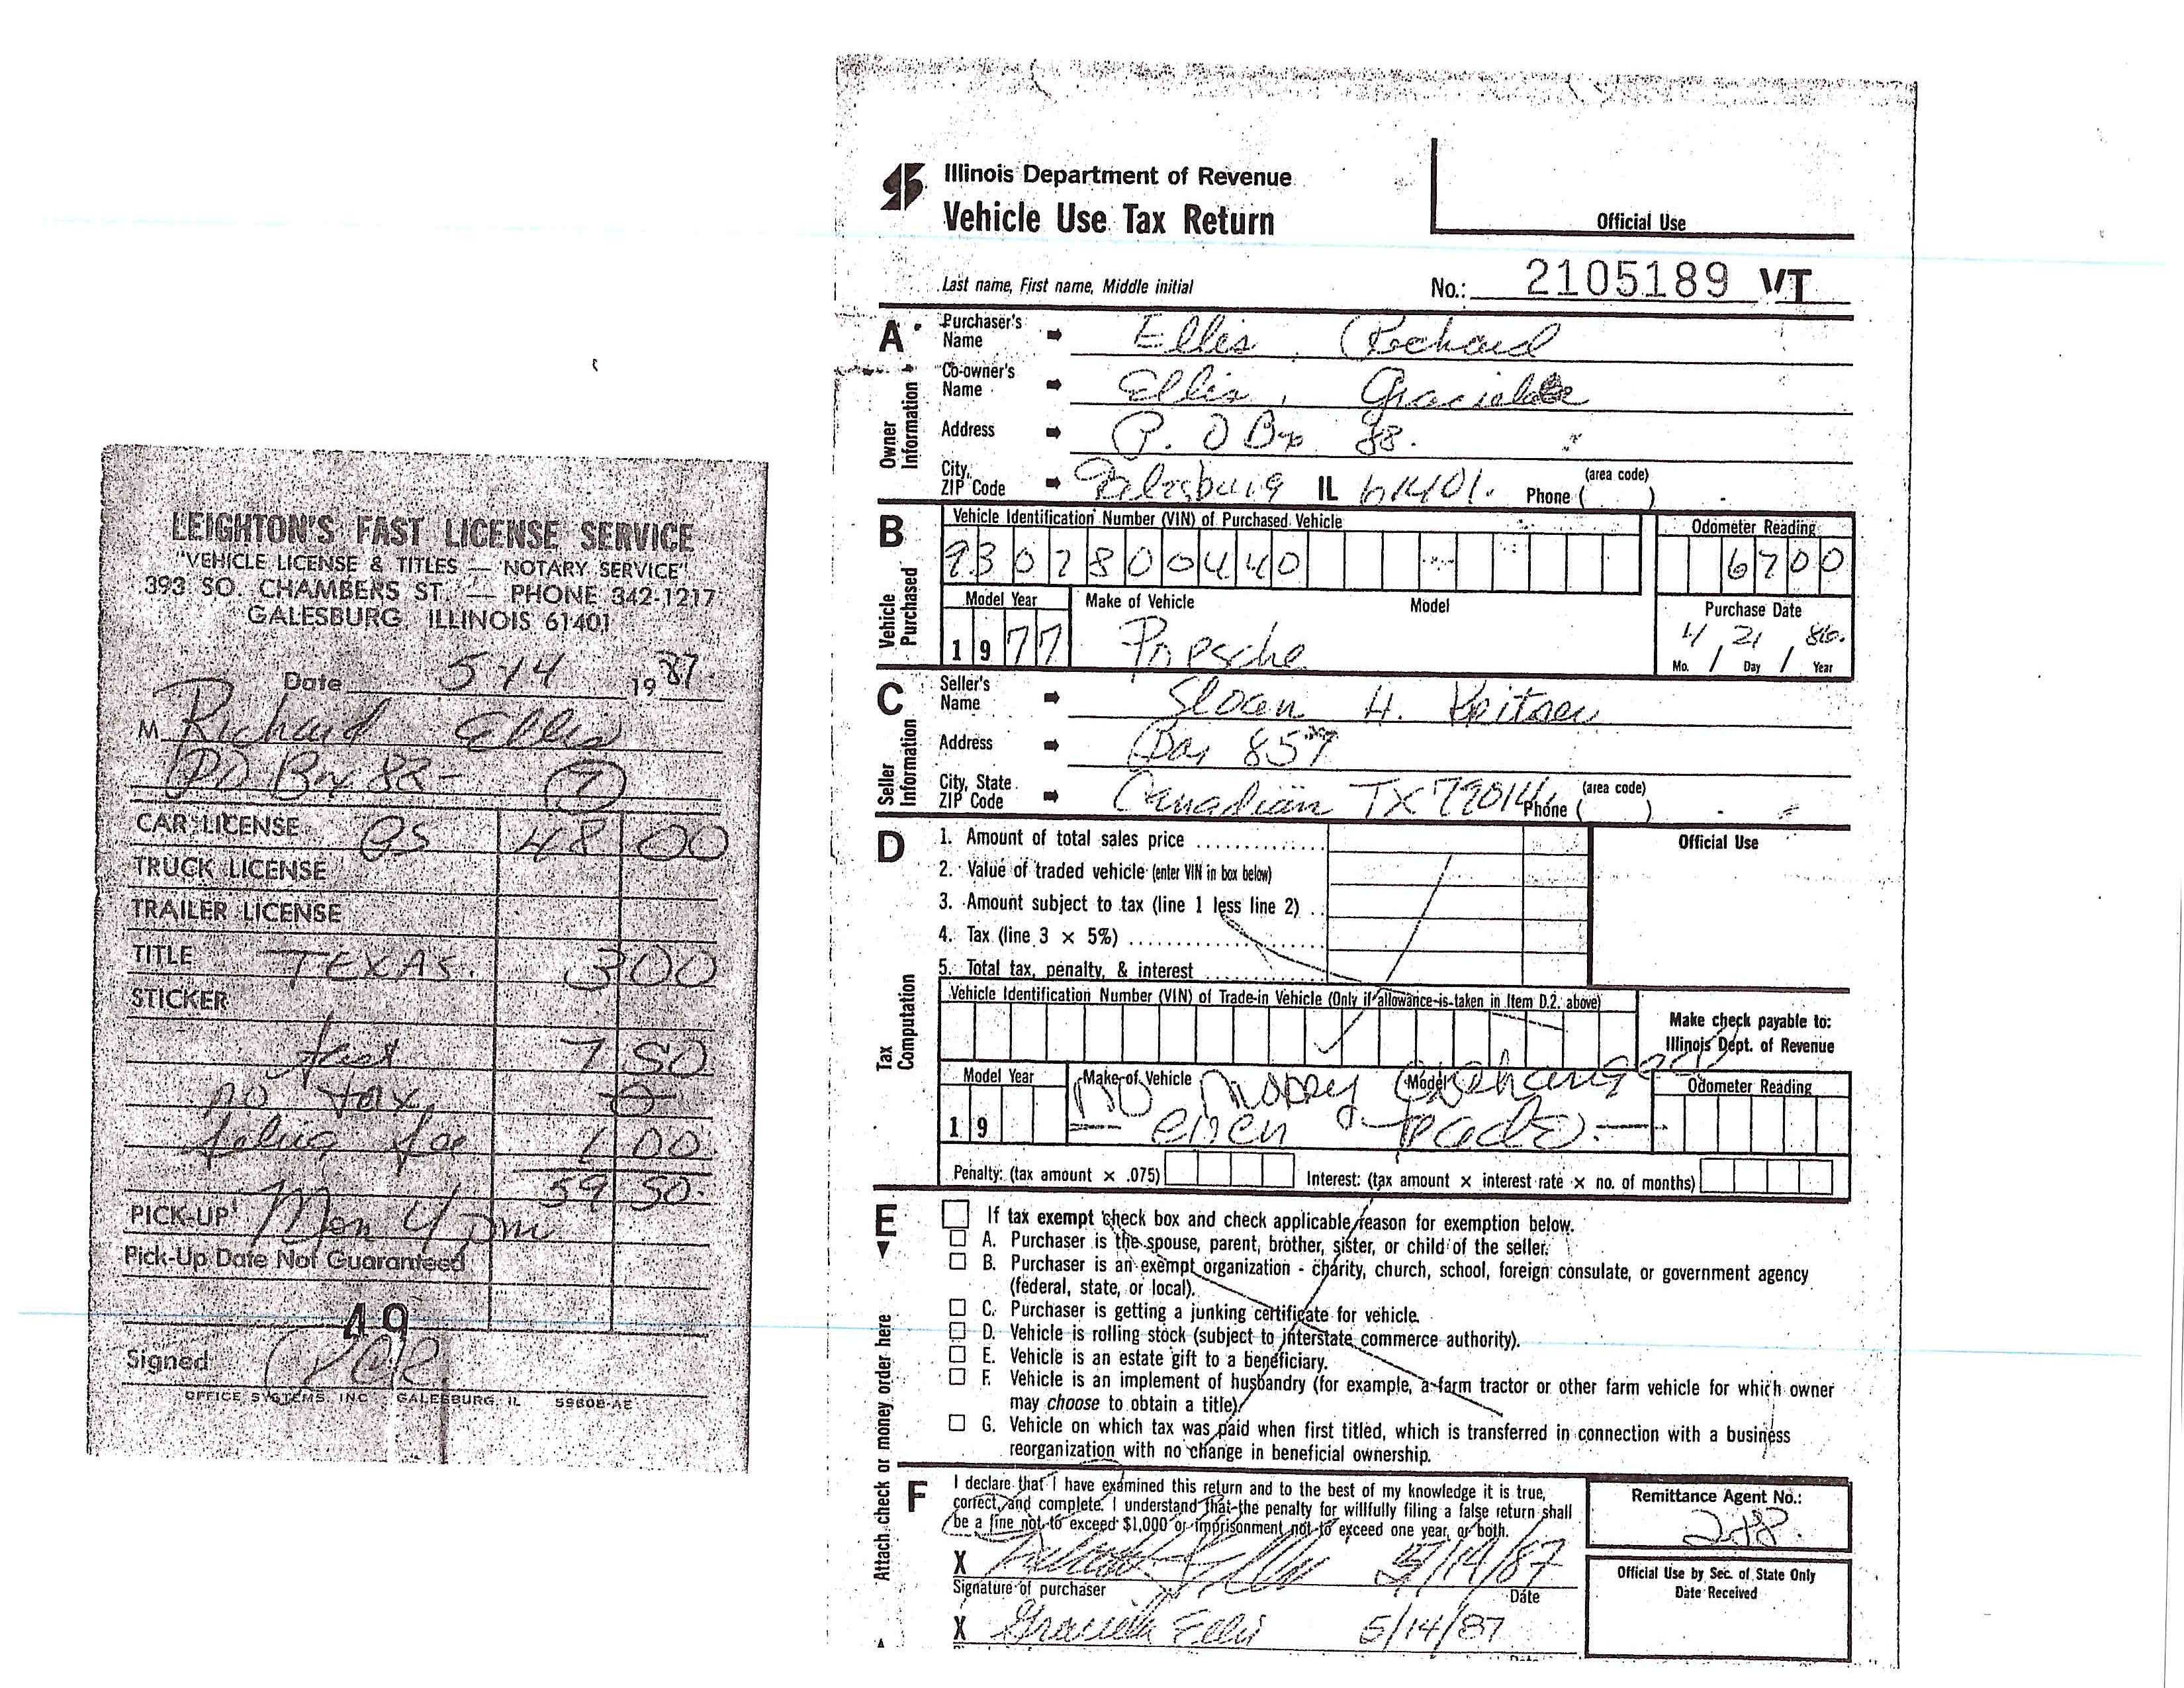 LEIGHTON'S FAST LICENSE SERVICE
"VEHICLE LICENSE & TITLES — NOTARY SERVICE"
393 SO. CHAMBERS ST. — PHONE 342-1217
GALESBURG, ILLINOIS 61401
Date 5-14 1987.
M Richard Ellis
PO Box 88- 7
CAR LICENSE 48 00
TRUCK LICENSE
TRAILER LICENSE
TITLE TEXAS. 3 00
STICKER
7 50
no tax
fee 1 00
59 50.
PICK-UP Mon 4 pm
Pick-Up Date Not Guaranteed
49
Signed
OFFICE SYSTEMS INC GALESBURG, IL 59608-AE
Illinois Department of Revenue
Vehicle Use Tax Return
Official Use
Last name, First name, Middle initial
No.: 2105189 VT
A
Owner Information
Purchaser's Name Ellis, Richard
Co-owner's Name Ellis, Graciela
Address P. O Box 88.
City, ZIP Code Galesburg IL 61401. Phone (area code) ( ) -
B
Vehicle Purchased
Vehicle Identification Number (VIN) of Purchased Vehicle
Odometer Reading
9307800440
6700
Model Year Make of Vehicle Model
Purchase Date
1977 Porsche
4 / 21 / 86.
Mo. / Day / Year
C
Seller Information
Seller's Name Sloan H.
Address Box 857
City, State ZIP Code Canadian TX 79014 Phone (area code) ( ) -
D
Tax Computation
1. Amount of total sales price
2. Value of traded vehicle (enter VIN in box below)
3. Amount subject to tax (line 1 less line 2)
4. Tax (line 3 × 5%)
5. Total tax, penalty, & interest
Official Use
Vehicle Identification Number (VIN) of Trade-in Vehicle (Only if allowance is taken in Item D.2. above)
Make check payable to:
Illinois Dept. of Revenue
Model Year Make of Vehicle Model
Odometer Reading
19
No money exchanged
— even trade. —
Penalty: (tax amount × .075)
Interest: (tax amount × interest rate × no. of months)
E
If tax exempt check box and check applicable reason for exemption below.
A. Purchaser is the spouse, parent, brother, sister, or child of the seller.
B. Purchaser is an exempt organization - charity, church, school, foreign consulate, or government agency
(federal, state, or local).
C. Purchaser is getting a junking certificate for vehicle.
D. Vehicle is rolling stock (subject to interstate commerce authority).
E. Vehicle is an estate gift to a beneficiary.
F. Vehicle is an implement of husbandry (for example, a farm tractor or other farm vehicle for which owner
may choose to obtain a title)
G. Vehicle on which tax was paid when first titled, which is transferred in connection with a business
reorganization with no change in beneficial ownership.
Attach check or money order here
F
I declare that I have examined this return and to the best of my knowledge it is true,
correct, and complete. I understand that the penalty for willfully filing a false return shall
be a fine not to exceed $1,000 or imprisonment not to exceed one year, or both.
Remittance Agent No.:
X 5/14/87
Signature of purchaser Date
Official Use by Sec. of State Only
Date Received
X Graciela Ellis 5/14/87